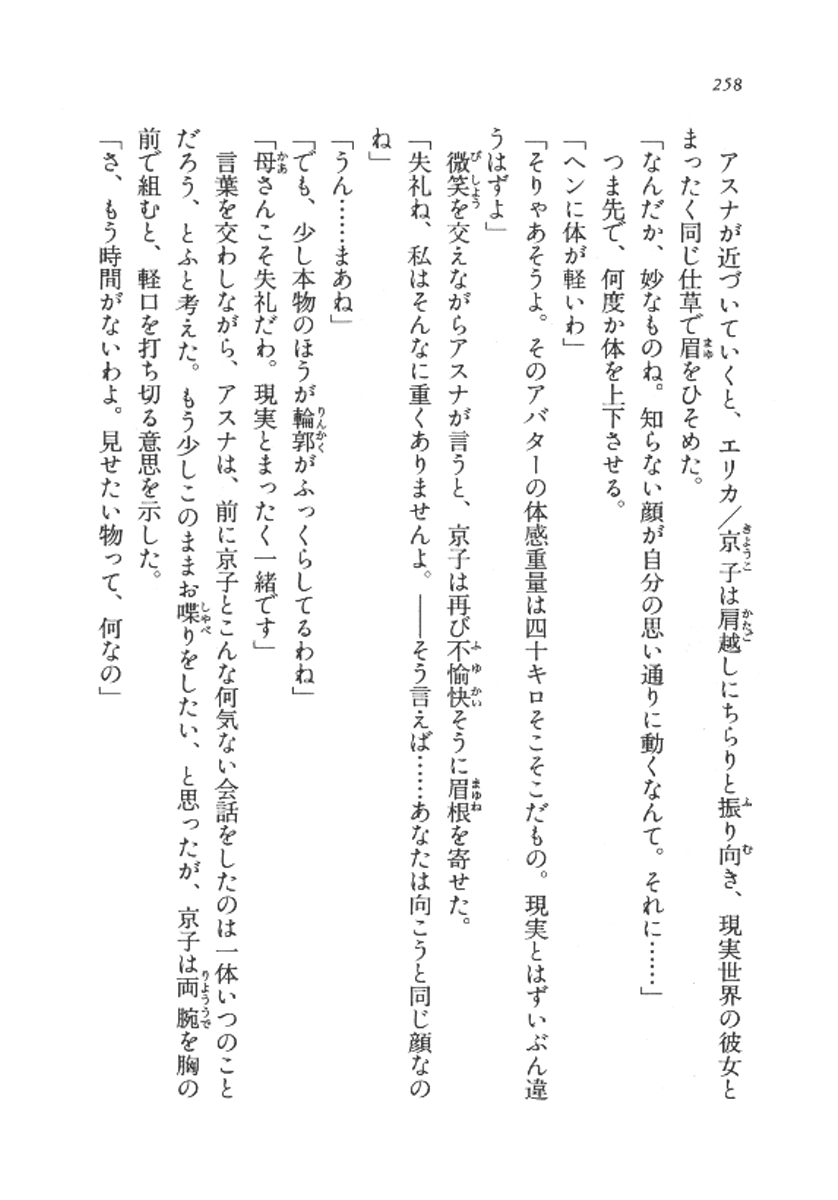 258
アスナが近づいていくと、エリカ／京子は肩越しにちらりと振り向き、現実世界の彼女と
まったく同じ仕草で眉をひそめた。
「なんだか、妙なものね。知らない顔が自分の思い通りに動くなんて。それに……」
つま先で、何度か体を上下させる。
「ヘンに体が軽いわ」
「そりゃあそうよ。そのアバターの体感重量は四十キロそこそこだもの。現実とはずいぶん違
うはずよ」
微笑を交えながらアスナが言うと、京子は再び不愉快そうに眉根を寄せた。
「失礼ね、私はそんなに重くありませんよ。――そう言えば……あなたは向こうと同じ顔なの
ね」
「うん……まあね」
「でも、少し本物のほうが輪郭がふっくらしてるわね」
「母さんこそ失礼だわ。現実とまったく一緒です」
言葉を交わしながら、アスナは、前に京子とこんな何気ない会話をしたのは一体いつのこと
だろう、とふと考えた。もう少しこのままお喋りをしたい、と思ったが、京子は両腕を胸の
前で組むと、軽口を打ち切る意思を示した。
「さ、もう時間がないわよ。見せたい物って、何なの」